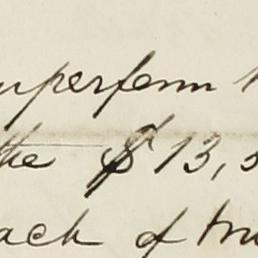 uperfenn
the $13,5
ach of